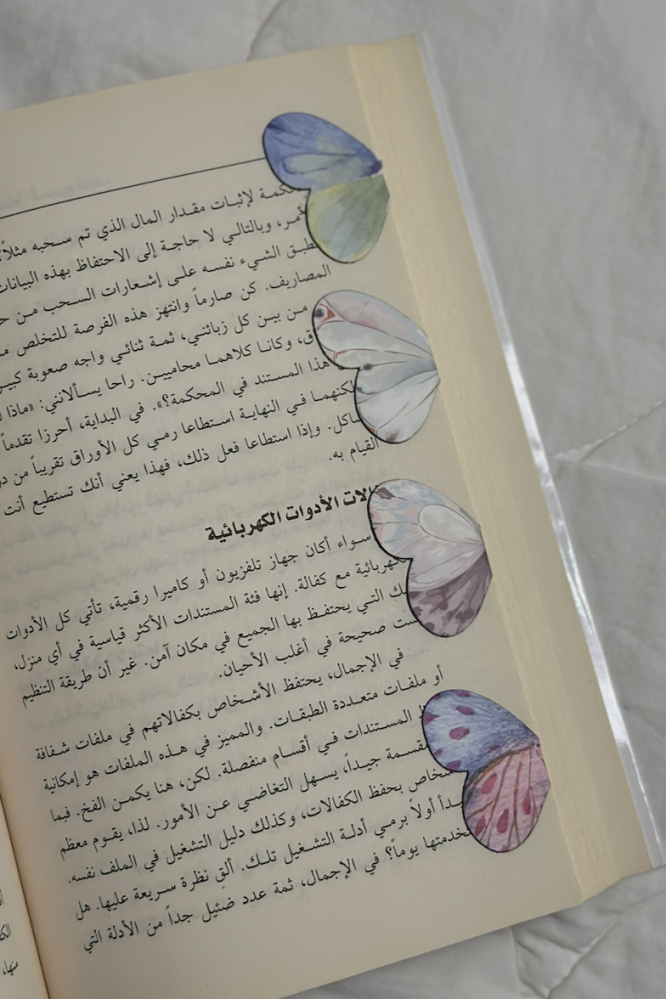 لإثبات مقدار المال الذي تم سحبه مثلاً
وبالتالي لا حاجة إلى الاحتفاظ بهذه البيانات
الشيء نفسه على إشعارات السحب من
المصاريف. كن صارماً وانتهز هذه الفرصة للتخلص
من بين كل زبائني، ثمة ثنائي واجه صعوبة
وكانا كلاهما محاميين. راحا يسألانني: «ماذا
هذا المستند في المحكمة؟». في البداية، أحرزا تقدماً
في النهاية استطاعا رمي كل الأوراق تقريباً من
وإذا استطاعا فعل ذلك، فهذا يعني أنك تستطيع أنت
القيام به.
الأدوات الكهربائية
سواء أكان جهاز تلفزيون أو كاميرا رقمية، تأتي كل الأدوات
مع كفالة. إنها فئة المستندات الأكثر قياسية في أي منزل،
التي يحتفظ بها الجميع في مكان آمن. غير أن طريقة التنظيم
صحيحة في أغلب الأحيان.
في الإجمال، يحتفظ الأشخاص بكفالاتهم في ملفات شفافة
أو ملفات متعددة الطبقات. والمميز في هذه الملفات هو إمكانية
المستندات في أقسام منفصلة. لكن، هنا يكمن الفخ. فبما
جيداً، يسهل التغاضي عن الأمور. لذا، يقوم معظم
بحفظ الكفالات، وكذلك دليل التشغيل في الملف نفسه.
أولاً برمي أدلة التشغيل تلك. ألقِ نظرة سريعة عليها. هل
يوماً؟ في الإجمال، ثمة عدد ضئيل جداً من الأدلة التي
منها،